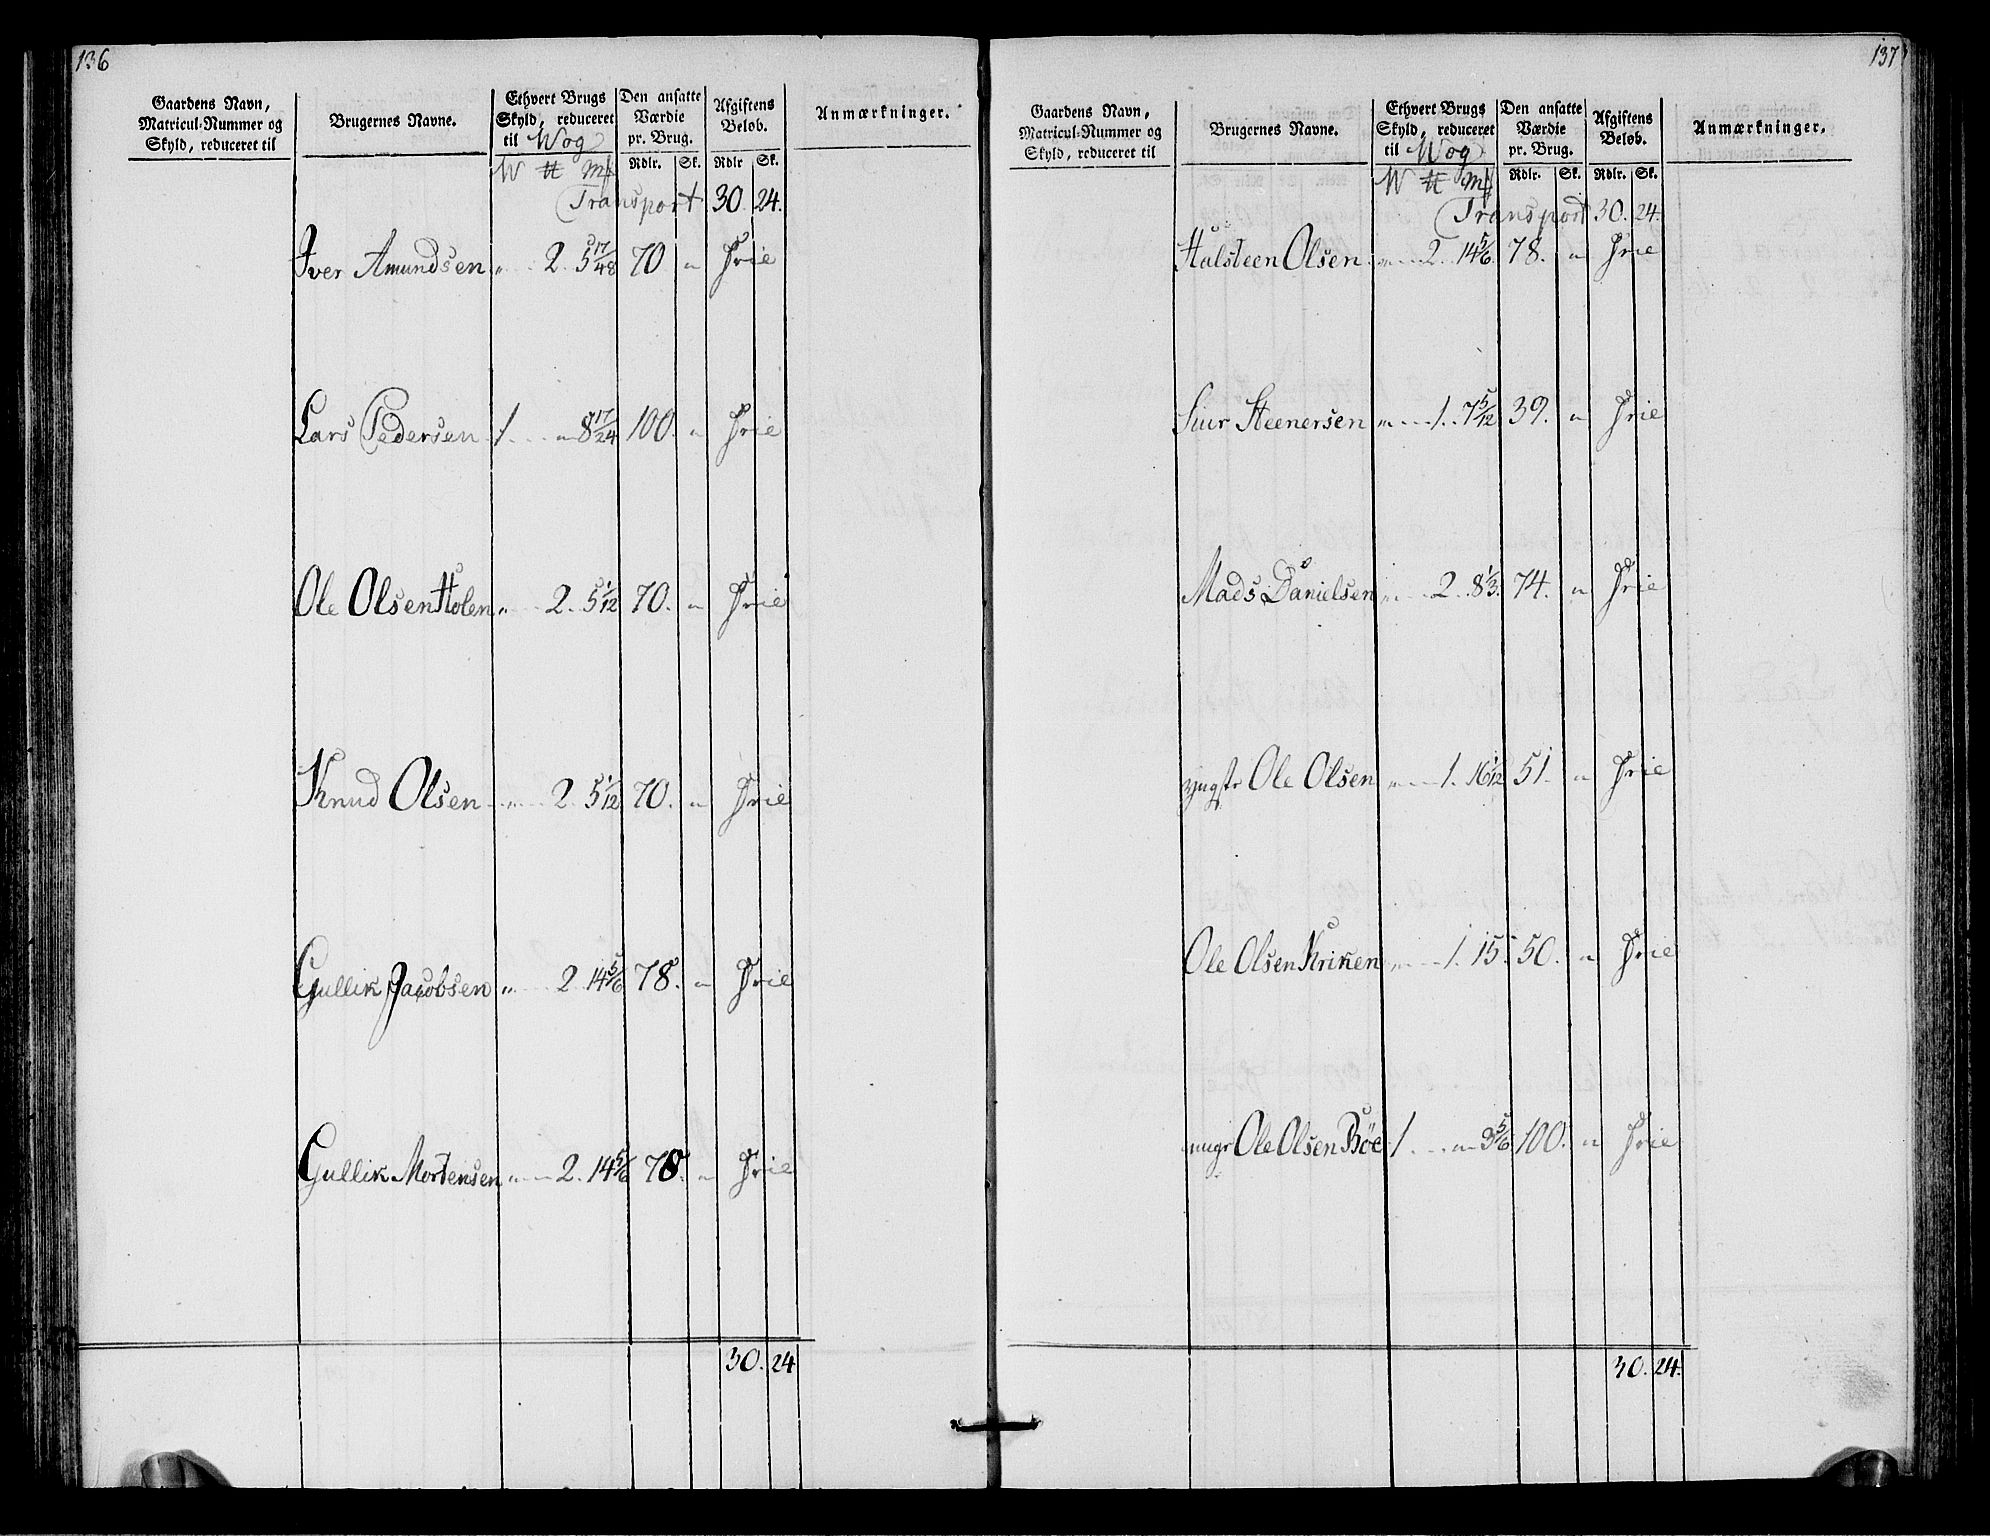 136
Gaardens Navn, Matricul-Nummer og Skyld, reduceret til | Brugernes Navne. | Ethvert Brugs Skyld, reduceret til Wog | Den ansatte Værdie pr. Brug. | Afgiftens Beløb. | Anmærkninger.
W ℔ Mk | Rdlr. Sk. | Rdlr Sk.
Transport 30. 24.
Iver Amundsen " 2. 5 17/48 70 " Frie
Lars Pedersen 1. " 8 17/24 100. " Frie
Ole Olsen Holen " 2. 5 1/12 70. " Frie
Knud Olsen " 2. 5 1/12 70. " Frie
Gullik Jacobsen " 2. 14 5/6 78. " Frie
Gullik Mortensen " 2. 14 5/6 78. " Frie
30. 24
137
Gaardens Navn, Matricul-Nummer og Skyld, reduceret til | Brugernes Navne. | Ethvert Brugs Skyld, reduceret til Wog | Den ansatte Værdie pr. Brug. | Afgiftens Beløb. | Anmærkninger.
W ℔ Mk | Rdlr. Sk. | Rdlr. Sk.
Transport 30. 24.
Halsteen Olsen " 2. 14 5/6 78. " Frie
Siur Steenersen " 1. 7 5/12 39. " Frie
Mads Danielsen " 2. 8 1/3. 74. " Frie
yngstr Ole Olsen " 1. 16 1/12 51. " Frie
Ole Olsen Kriken " 1. 15. 50. " Frie
Ole Olsen Böe 1. " 3 5/6 100. " Frie
30. 24.